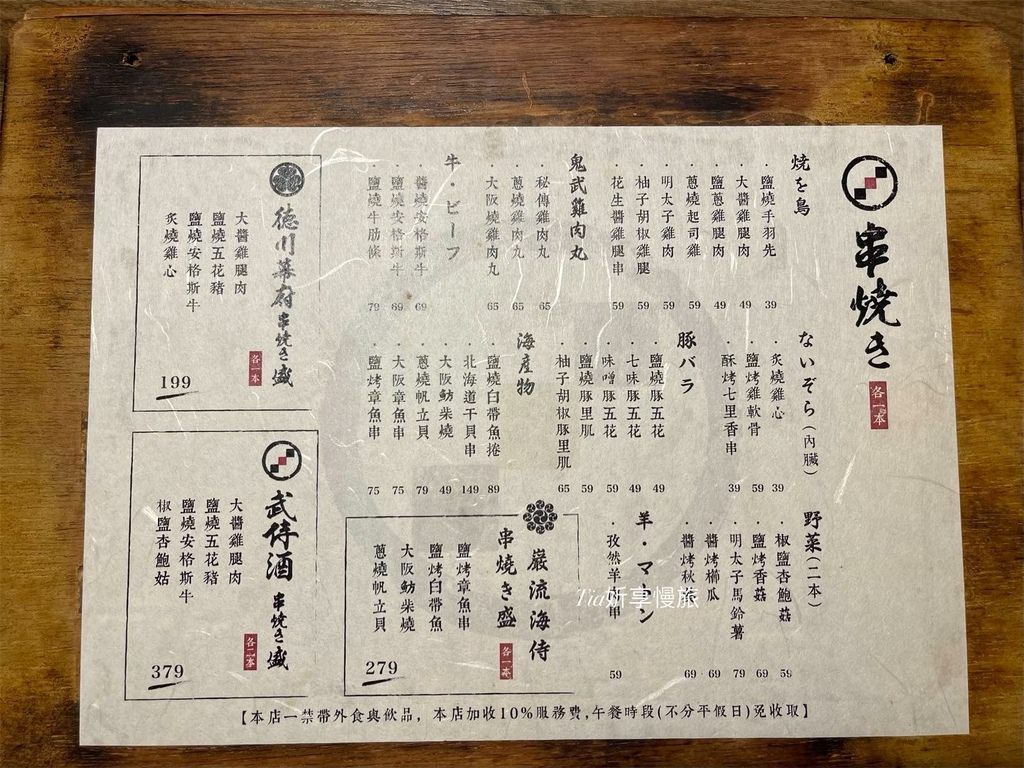 串燒き
各一本
燒き鳥
・鹽燒手羽先 39
・大醬雞腿肉 49
・鹽蔥雞腿肉 49
・蔥燒起司雞 59
・明太子雞肉 59
・柚子胡椒雞腿 59
・花生醬雞腿串 59
鬼武雞肉丸
・秘傳雞肉丸 65
・蔥燒雞肉丸 65
・大阪燒雞肉丸 65
牛・ビーフ
・醬燒安格斯牛 69
・鹽燒安格斯牛 69
・鹽燒牛肋條 79
ないぞら(內臟)
・炙燒雞心 39
・鹽烤雞軟骨 59
・酥烤七里香串 39
豚バラ
・鹽燒豚五花 49
・七味豚五花 49
・味噌豚五花 59
・鹽燒豚里肌 59
・柚子胡椒豚里肌 65
海産物
・鹽燒白帶魚捲 89
・北海道干貝串 149
・大阪魴柴燒 49
・蔥燒帆立貝 79
・大阪章魚串 75
・鹽烤章魚串 75
野菜(二本)
・椒鹽杏鮑菇 59
・鹽烤香菇 69
・明太子馬鈴薯 79
・醬烤櫛瓜 69
・醬烤秋 69
羊・マトン
・孜然羊 串 59
巖流海侍
串燒き盛
各一本
鹽烤章魚串
鹽烤白帶魚
大阪魴柴燒
蔥燒帆立貝
279
德川幕府串燒き盛
各一本
大醬雞腿肉
鹽燒五花豬
鹽燒安格斯牛
炙燒雞心
199
武侍酒串燒き盛
各二本
大醬雞腿肉
鹽燒五花豬
鹽燒安格斯牛
椒鹽杏鮑菇
379
【本店一禁帶外食與飲品，本店加收10%服務費,午餐時段(不分平假日)免收取】
Tia妡享慢旅